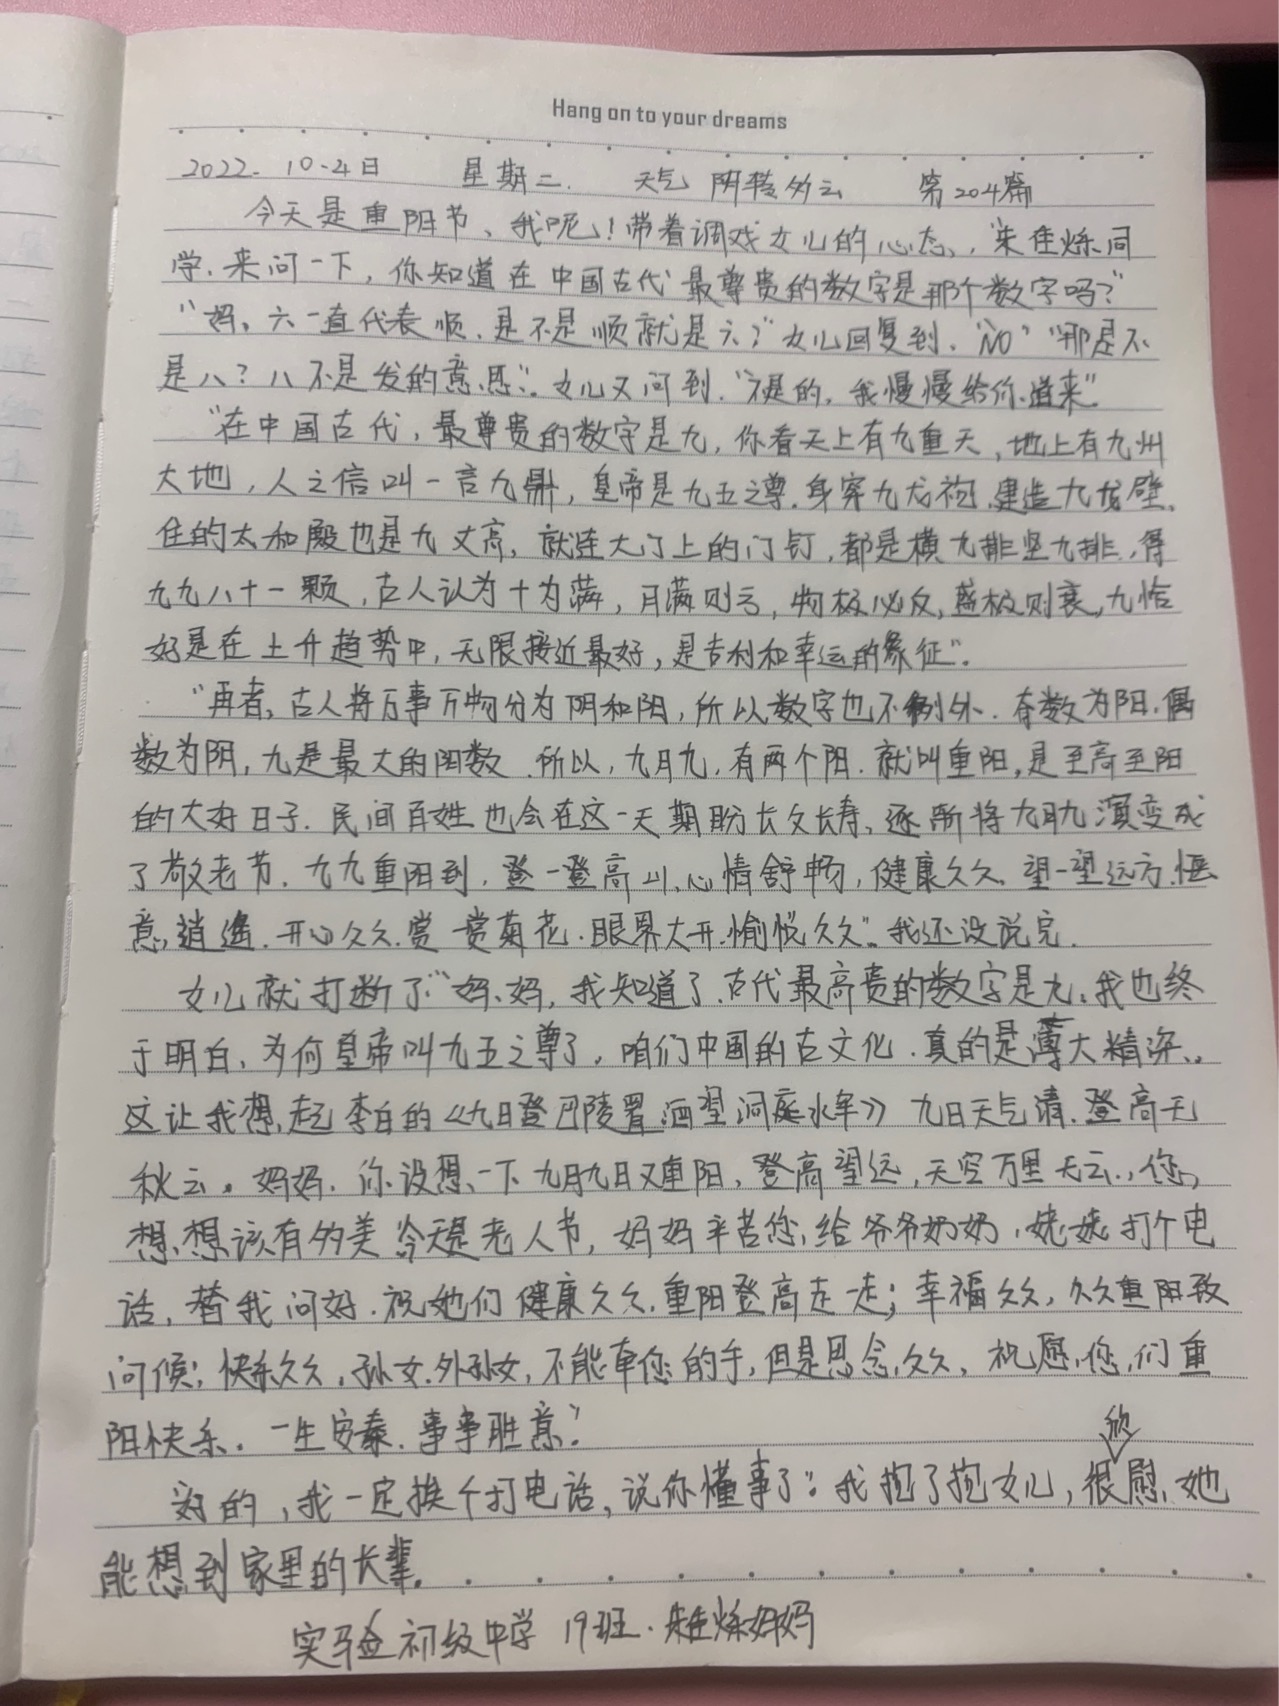 Hang on to your dreams
2022. 10-4日 星期二. 天气 阴转多云 第204篇
今天是重阳节、我呢!带着调戏女儿的心态,“朱佳烁同
学.来问一下,你知道在中国古代最尊贵的数字是那个数字吗?”
“妈,六一直代表顺.是不是顺就是六?”女儿回复到.“NO”“那是不
是八?八不是发的意思”.女儿又问到.“不是的,我慢慢给你道来”
“在中国古代,最尊贵的数字是九,你看天上有九重天,地上有九州
大地,人之信叫一言九鼎,皇帝是九五之尊.身穿九龙袍.建造九龙壁.
住的太和殿也是九丈高,就连大门上的门钉,都是横九排竖九排.,得
九九八十一颗,古人认为十为满,月满则亏,物极必反,盛极则衰,九恰
好是在上升趋势中,无限接近最好,是吉利和幸运的象征”.
“再者,古人将万事万物分为阴和阳,所以数字也不例外.奇数为阳.偶
数为阴,九是最大的阳数.所以,九月九,有两个阳.就叫重阳,是至高至阳
的大好日子.民间百姓也会在这一天期盼长久长寿,逐渐将九月九演变成
了敬老节.九九重阳到.登一登高山,心情舒畅,健康久久.望一望远方.惬
意逍遥.开心久久.赏一赏菊花.眼界大开.愉悦久久”.我还没说完.
女儿就打断了“妈妈,我知道了.古代最高贵的数字是九,我也终
于明白,为何皇帝叫九五之尊了,咱们中国的古文化.真的是薄大精深.
这让我想起李白的《九日登巴陵置酒望洞庭水军》九日天气清.登高无
秋云。妈妈.你设想一下九月九日又重阳,登高望远,天空万里无云.,您
想想该有多美 今天是老人节,妈妈辛苦您,给爷爷奶奶,姥姥打个电
话,替我问好.祝她们健康久久.重阳登高走一走;幸福久久,久久重阳致
问候;快乐久久,孙女.外孙女,不能牵您的手,但是思念久久,祝愿您们重
阳快乐.一生安泰.事事胜意.”
好的,我一定挨个打电话,说你懂事了”.我抱了抱女儿,很欣慰,她
能想到家里的长辈.
实验初级中学 19班.朱佳烁妈妈